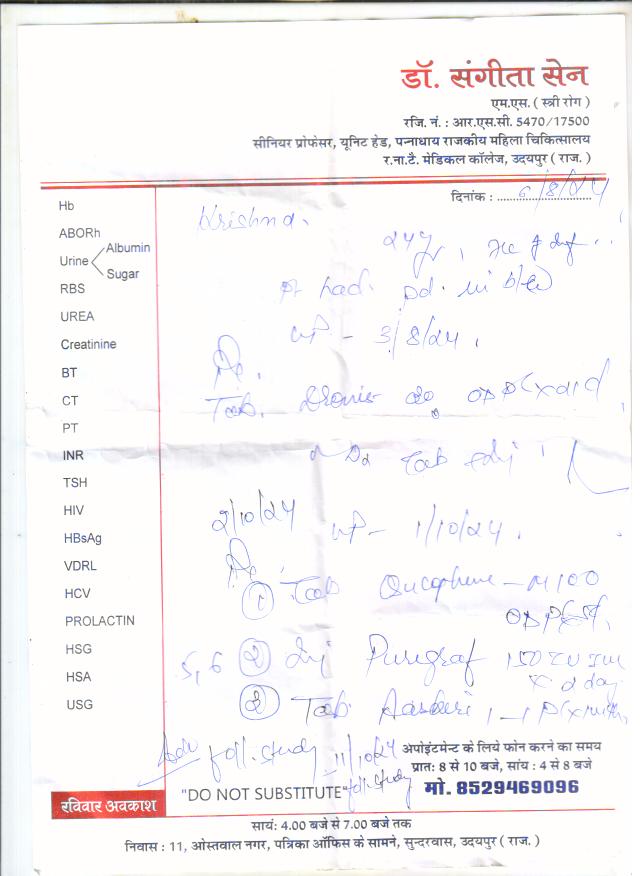 डॉ. संगीता सेन
एम.एस. ( स्त्री रोग )
रजि. नं. : आर.एस.सी. 5470/17500
सीनियर प्रोफेसर, यूनिट हेड, पन्नाधाय राजकीय महिला चिकित्सालय
र.ना.टै. मेडिकल कॉलेज, उदयपुर ( राज. )
दिनांक : 6/8/24
Hb
ABORh
Urine Albumin
Sugar
RBS
UREA
Creatinine
BT
CT
PT
INR
TSH
HIV
HBsAg
VDRL
HCV
PROLACTIN
HSG
HSA
USG
Krishna.
24y
had. pd. in
- 3/8/24.
Tab.
Tab
2/10/24 - 1/10/24.
① Tab - M100
5, 6 ② Inj Puregraf 150 IU
x 2 day
③ Tab.
Adv foll. study 11/10/24
foll. study
अपोइंटमेन्ट के लिये फोन करने का समय
प्रात: 8 से 10 बजे, सांय : 4 से 8 बजे
मो. 8529469096
रविवार अवकाश
"DO NOT SUBSTITUTE"
सायं: 4.00 बजे से 7.00 बजे तक
निवास : 11, ओस्तवाल नगर, पत्रिका ऑफिस के सामने, सुन्दरवास, उदयपुर ( राज. )